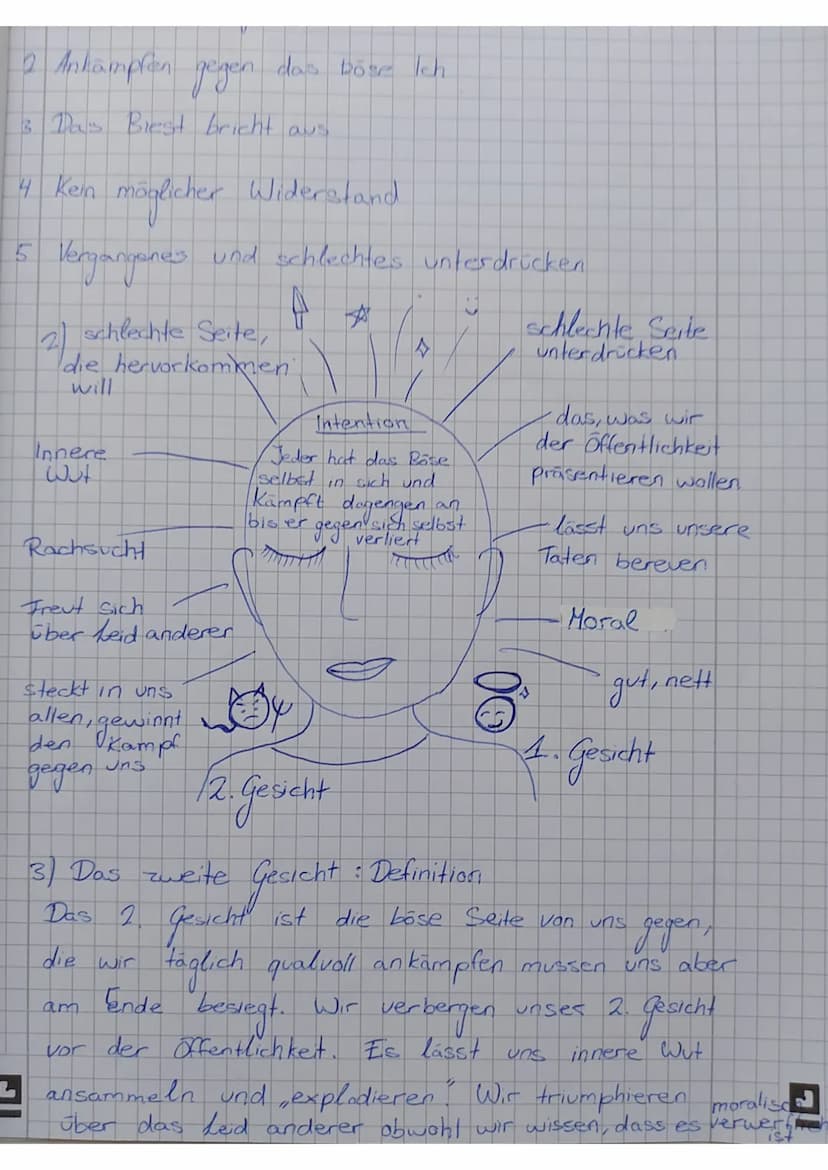 2 Ankämpfen gegen das böse Ich
3 Das Biest bricht aus
4 Kein möglicher Widerstand
5 Vergangenes und schlechtes unterdrücken
2) schlechte Seite,
die hervorkommen
will
Innere
Wut
Rachsucht
Freut sich
über Leid anderer
steckt in uns
allen, gewinnt
den Kampf
gegen uns
2. Gesicht
Intention
Jeder hat das Böse
selbst in sich und
kämpft dagengen an
bis er gegen sich selbst
verliert
schlechte Seite
unterdrücken
das, was wir
der Öffentlichkeit
präsentieren wollen
lässt uns unsere
Taten bereuen
Moral
gut, nett
1. Gesicht
3) Das zweite Gesicht : Definition
Das 2. Gesicht ist die böse Seite von uns gegen,
die wir täglich qualvoll ankämpfen mussen uns aber
am Ende besiegt. Wir verbergen unser 2. Gesicht
vor der Öffentlichkeit. Es lässt uns innere Wut
ansammeln und „explodieren“. Wir triumphieren
über das Leid anderer obwohl wir wissen, dass es moralisch verwerflich
ist